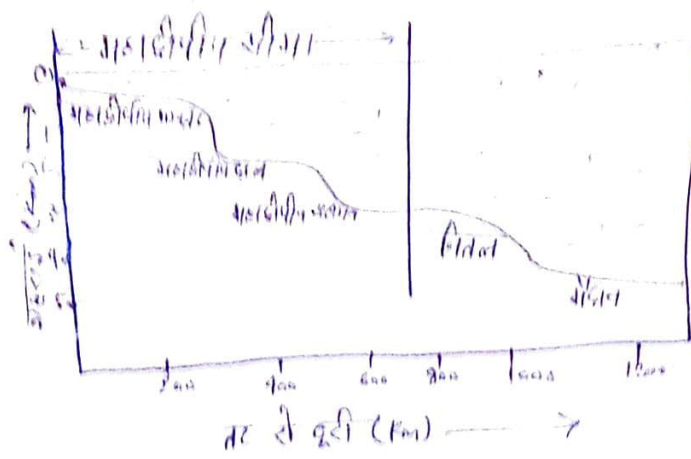 महाद्वीपीय सीमा
0
महाद्वीपीय मग्नतट
महाद्वीपीय ढाल
महाद्वीपीय उत्थान
नितल
मैदान
गहराई (Km)
200 400 600 800 1000 1200
तट से दूरी (Km)